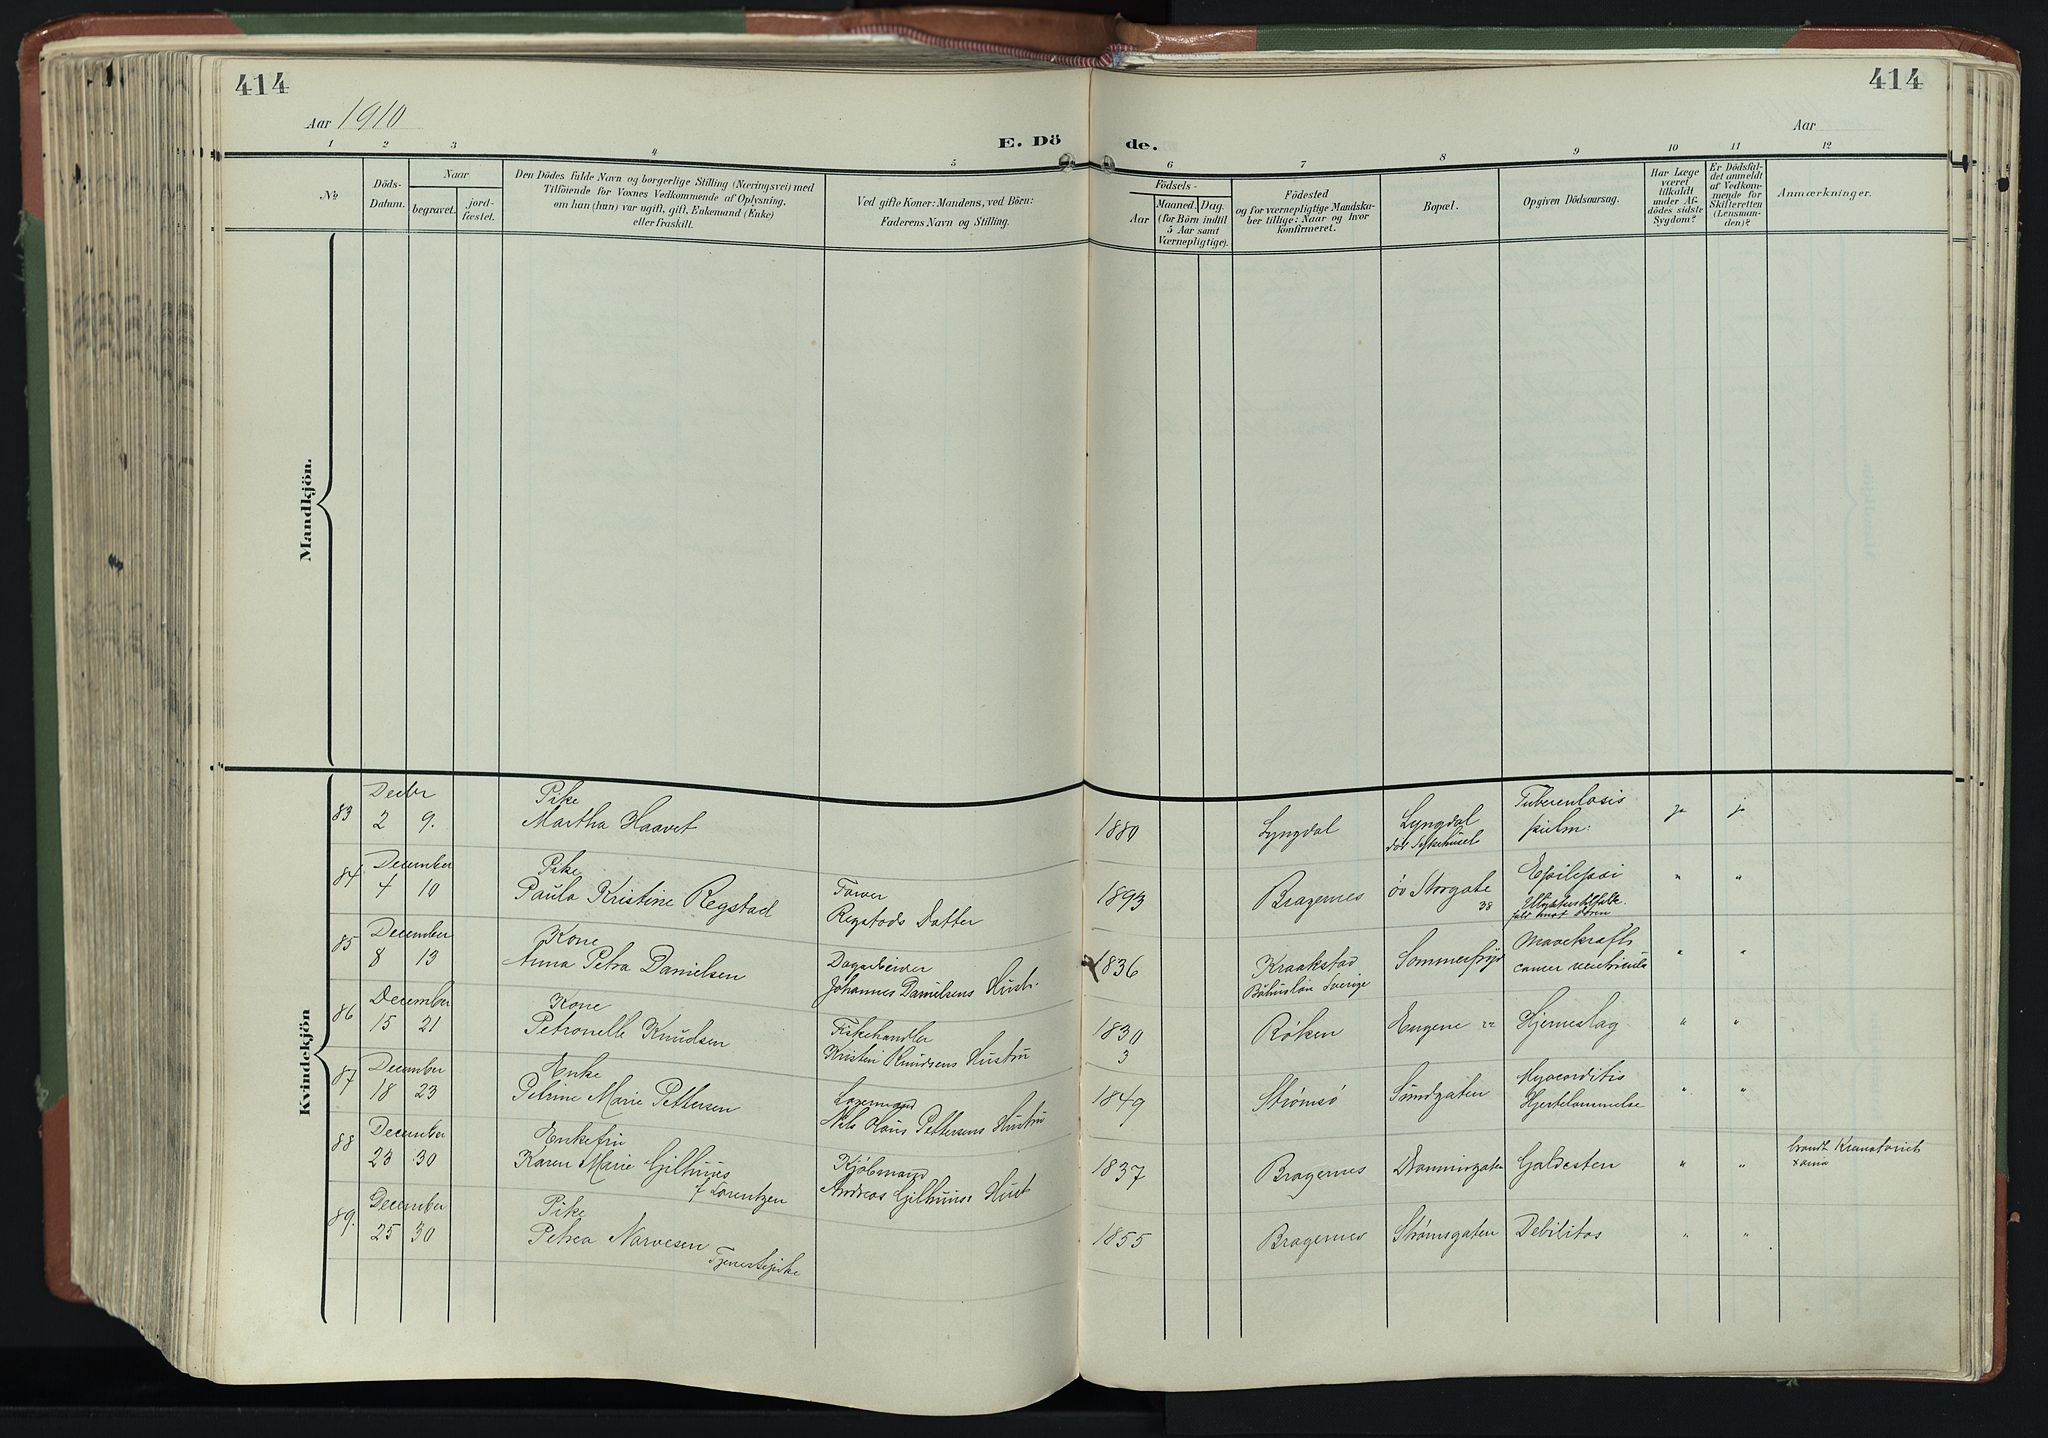 414
414
Aar 1910
Aar
E. Dö
de.
1 2 3 4 5 6 7 8 9 10 11 12
No
Döds-
Datum.
Naar
begravet.
jord-
fæstet.
Den Dödes fulde Navn og borgerlige Stilling (Næringsvei) med
Tilföiende for Voxnes Vedkommende af Oplysning,
om han (hun) var ugift, gift, Enkemand (Enke)
eller fraskilt.
Ved gifte Koner: Mandens, ved Börn:
Faderens Navn og Stilling.
Födsels-
Aar
Maaned. Dag.
(for Börn indtil
5 Aar samt
Værnepligtige).
Födested
og for værnepligtige Mandska-
ber tillige: Naar og hvor
konfirmeret.
Bopæl.
Opgiven Dödsaarsag.
Har Læge
været
tilkaldt
under Af-
dödes sidste
Sygdom?
Er Dödsfal-
det anmeldt
af Vedkom-
mende for
Skifteretten
(Lensman-
den)?
Anmærkninger.
Mandkjön.
Kvindekjön
83 Decbr
2 9.
Pike
Martha Haavet
1880
Lyngdal
Lyngdal
Tuberculosis
pulm:
ja
ja
84 December
4 10
Pike
Paula Kristine Regstad
Farver
Regstads Datter
1893
Bragernes
øv Storgate
38
Epilepsi
" "
85 December
8 13
Kone
Anna Petra Danielsen
Dagarbeider
Johannes Danielsens Hustr.
1836
Kraakstad
Båhuslän Sverige
Sommerfryd
Mavekræft
cancer ventricula
" "
86 December
15 21
Kone
Petronelle Knudsen
Fiskehandler
Kristen Knudsens Hustru
1830
3
Røken
Engene 22
Hjerneslag
" "
87 December
18 23
Enke
Petrine Marie Pettersen
Lagermand
Nils Olaus Pettersens Hustru
1849
Strømsø
Sundgaten
Myocarditis
Hjertelammelse
" "
88 December
23 30
Enkefru
Karen Marie Gilhuus
f Lorentzen
Kjøbmand
Andreas Gilhuus's Hust
1837
Bragernes
Dronningaten
Galdesten
" "
brændt Krematoriet
89. December
25 30
Pike
Petrea Narvesen
Tjenestepike
1855
Bragernes
Strømsgaten
Debilitas
" "